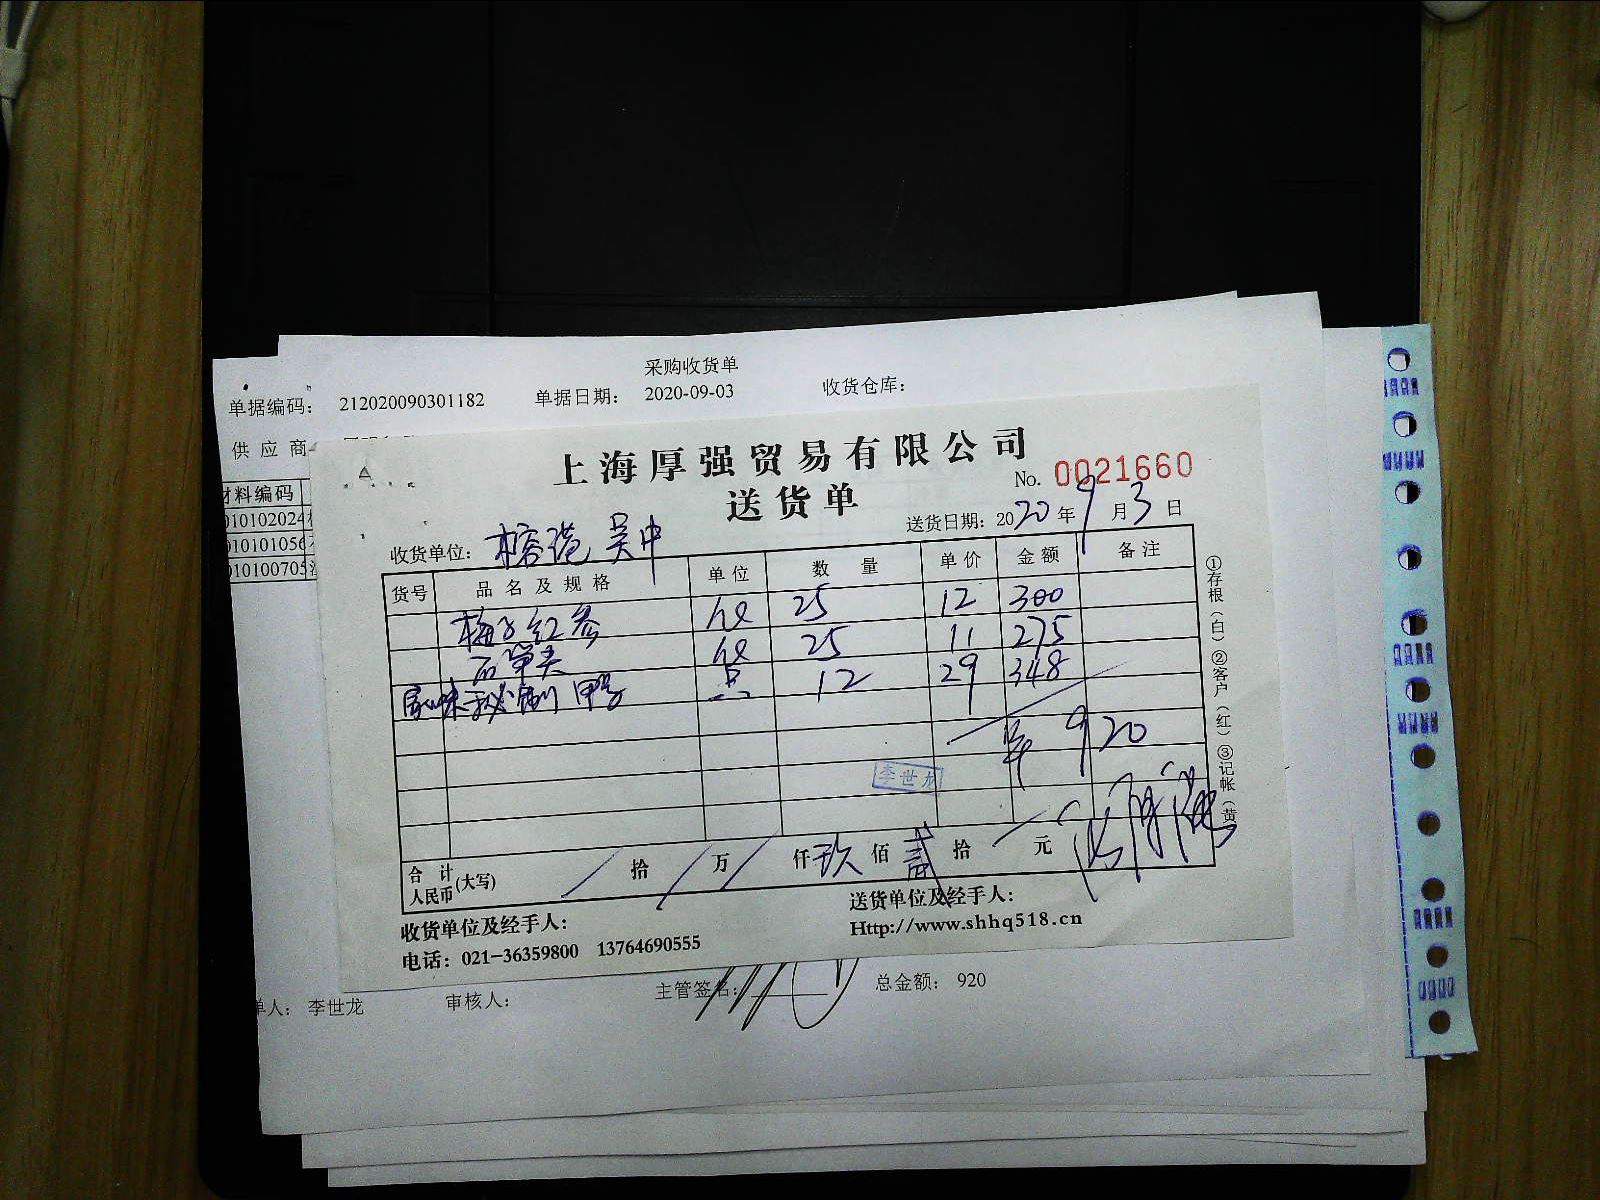 采购收货单
单据编码： 212020090301182 单据日期： 2020-09-03 收货仓库：
供应商
材料编码
010102024
01010105
010100705
上海厚强贸易有限公司
No. 0021660
送货单
送货日期：2020年9月3日
收货单位： 榕港 吴中
货号 品名及规格 单位 数量 单价 金额 备注
梅子红参 25 12 300
25 11 275
秘制鸭 12 29 348
920
李世龙
合计人民币(大写) 拾 万 仟玖佰贰拾 元
收货单位及经手人： 送货单位及经手人：
电话：021-36359800 13764690555 Http://www.shhq518.cn
单人： 李世龙 审核人： 主管签名： 总金额： 920
①存根（白）②客户（红）③记帐（黄